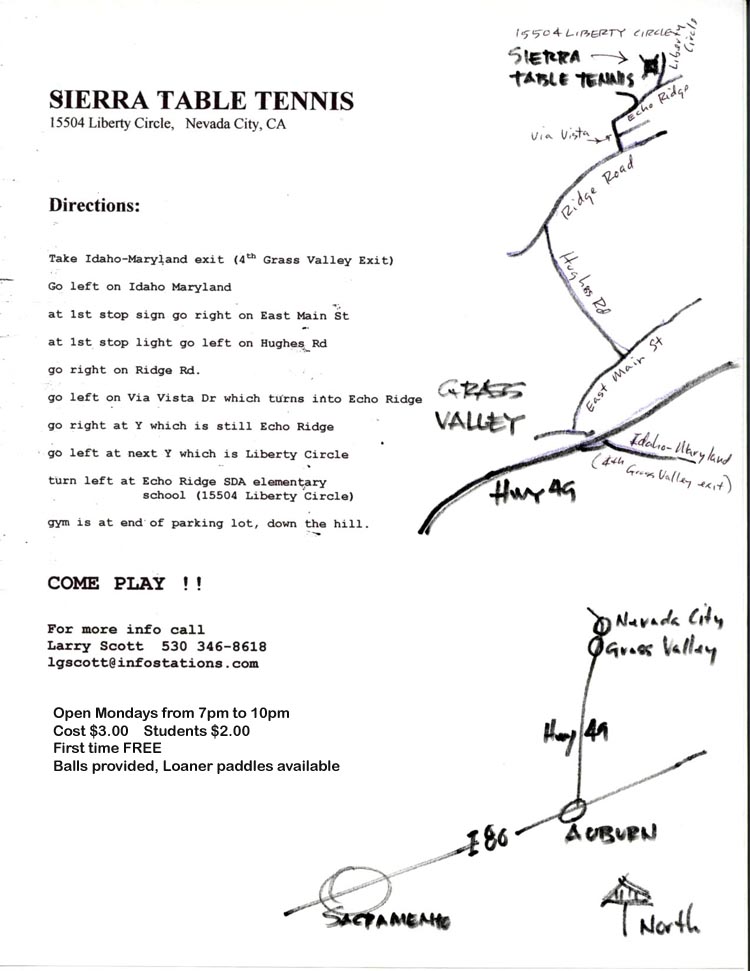 SIERRA TABLE TENNIS
15504 Liberty Circle, Nevada City, CA
Directions:
Take Idaho-Maryland exit (4th Grass Valley Exit)
Go left on Idaho Maryland
at 1st stop sign go right on East Main St
at 1st stop light go left on Hughes Rd
go right on Ridge Rd.
go left on Via Vista Dr which turns into Echo Ridge
go right at Y which is still Echo Ridge
go left at next Y which is Liberty Circle
turn left at Echo Ridge SDA elementary
school (15504 Liberty Circle)
gym is at end of parking lot, down the hill.
COME PLAY !!
For more info call
Larry Scott 530 346-8618
lgscott@infostations.com
Open Mondays from 7pm to 10pm
Cost $3.00 Students $2.00
First time FREE
Balls provided, Loaner paddles available
15504 LIBERTY CIRCLE
SIERRA
TABLE TENNIS
Liberty
Circle
Echo Ridge
Via Vista
Ridge Road
Hughes Rd
East Main St
GRASS
VALLEY
Idaho-Maryland
(4th Grass Valley exit)
Hwy 49
Nevada City
Grass Valley
Hwy 49
I 80
AUBURN
SACRAMENTO
North